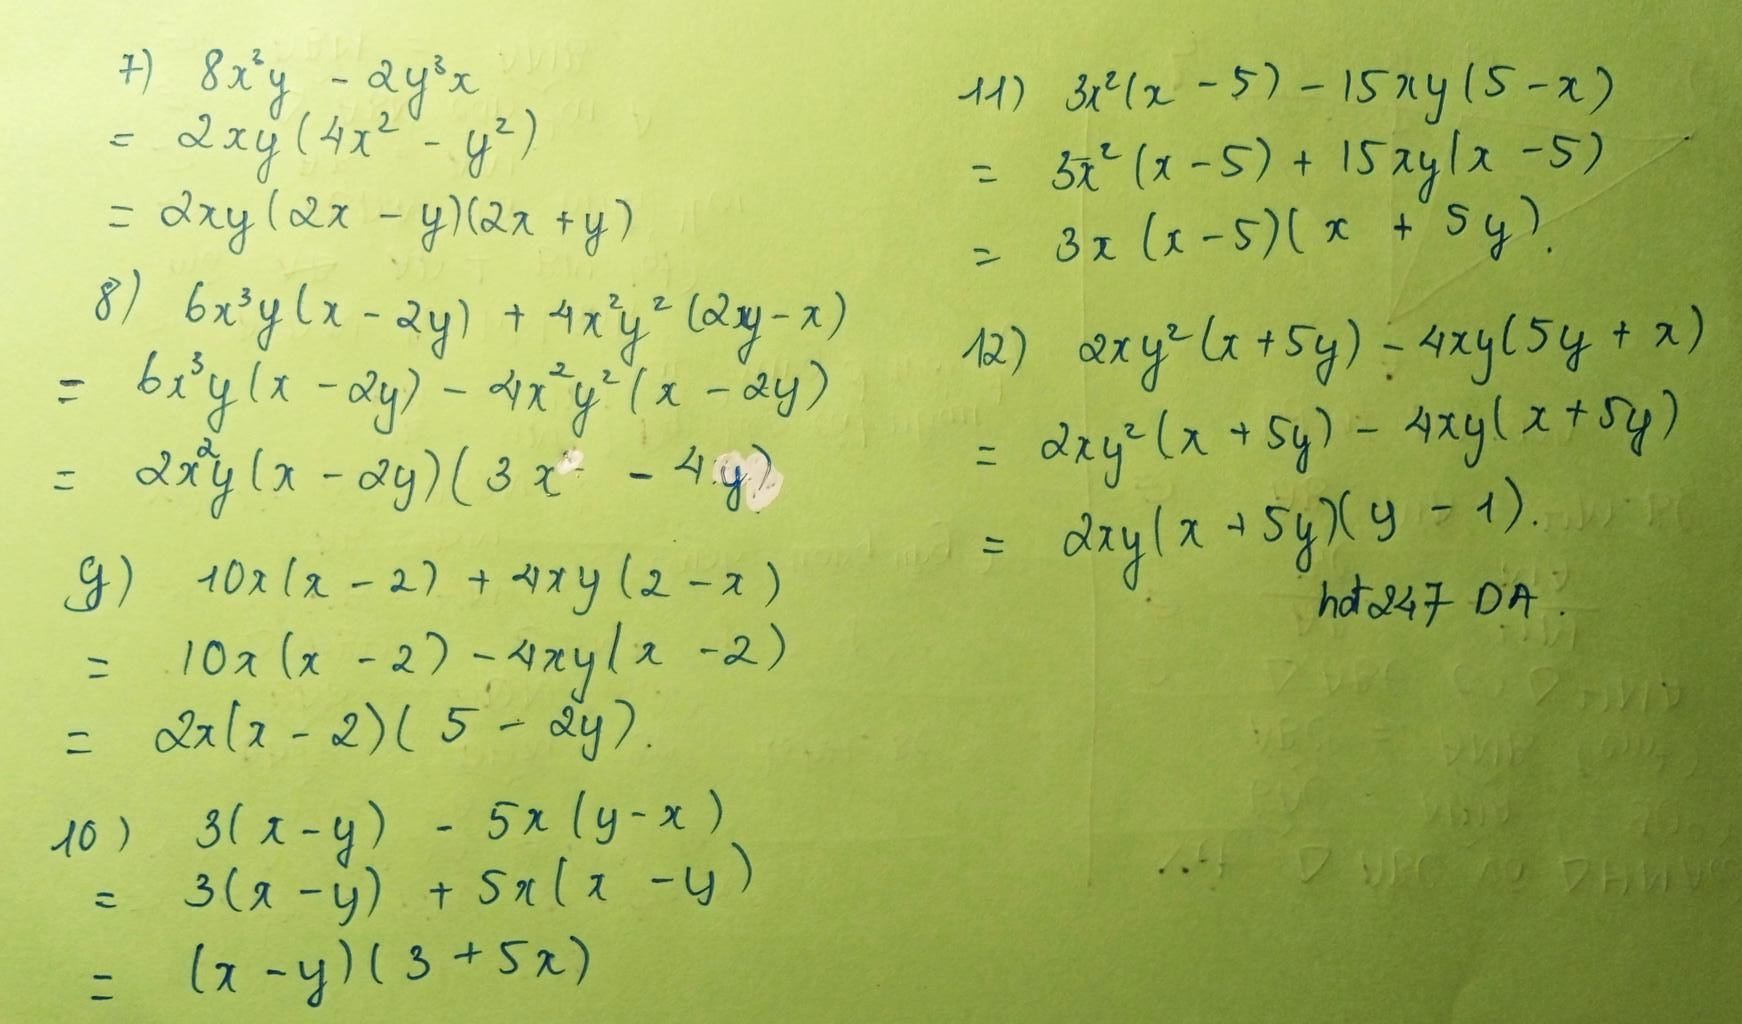 7) 8x³y - 2y³x
= 2xy(4x² - y²)
= 2xy(2x - y)(2x + y)
8) 6x³y(x - 2y) + 4x²y²(2y - x)
= 6x³y(x - 2y) - 4x²y²(x - 2y)
= 2x²y(x - 2y)(3x - 4y)
9) 10x(x - 2) + 4xy(2 - x)
= 10x(x - 2) - 4xy(x - 2)
= 2x(x - 2)(5 - 2y).
10) 3(x - y) - 5x(y - x)
= 3(x - y) + 5x(x - y)
= (x - y)(3 + 5x)
11) 3x²(x - 5) - 15xy(5 - x)
= 3x²(x - 5) + 15xy(x - 5)
= 3x(x - 5)(x + 5y).
12) 2xy²(x + 5y) - 4xy(5y + x)
= 2xy²(x + 5y) - 4xy(x + 5y)
= 2xy(x + 5y)(y - 1).
hot247 DA.